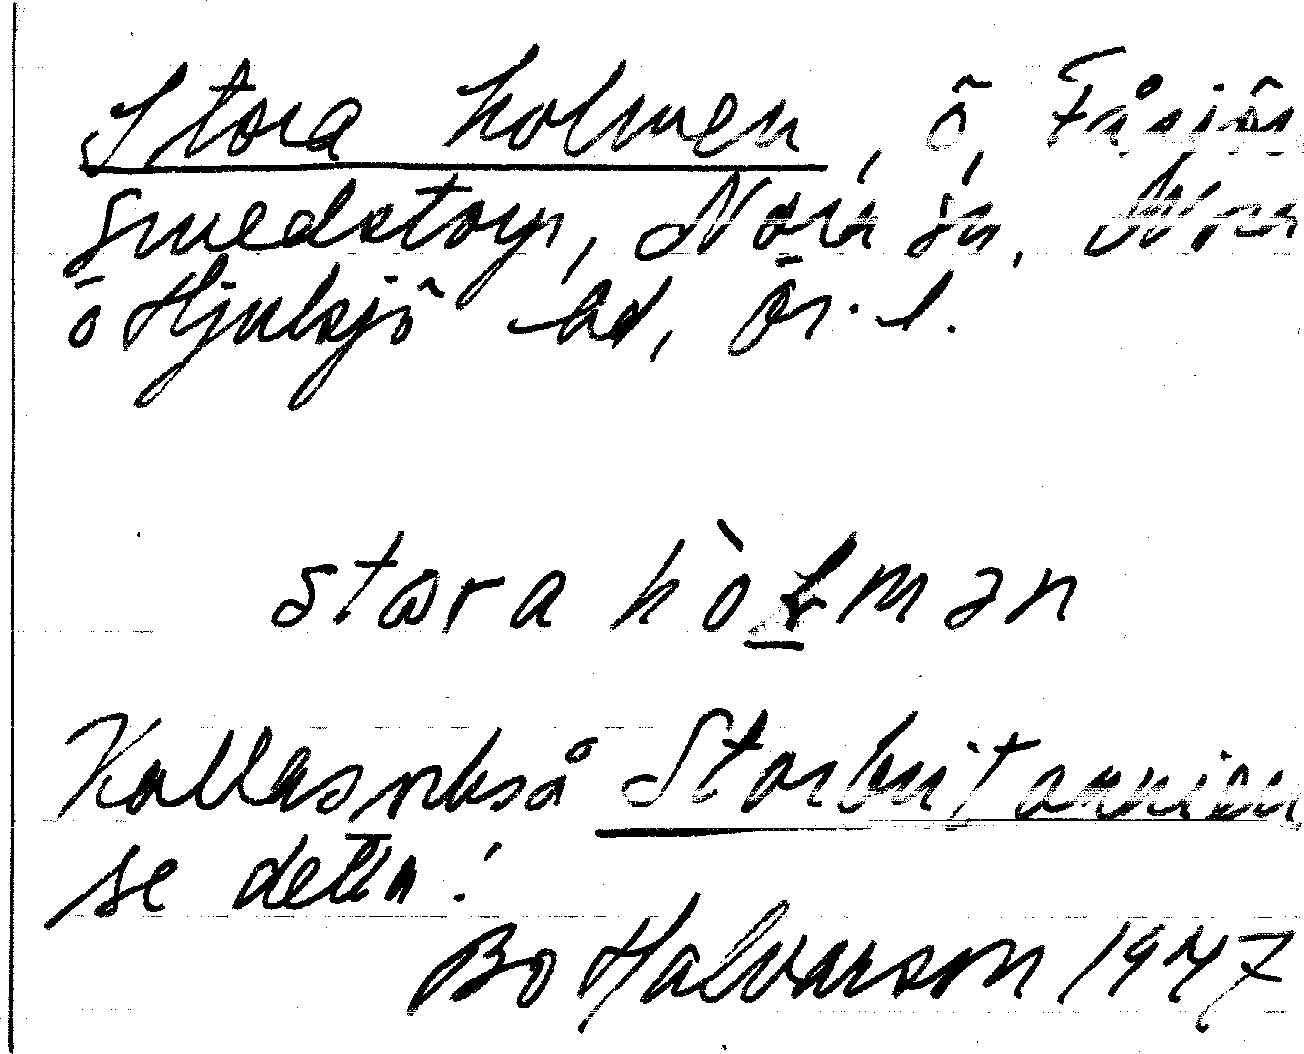 Stora holmen, ö, Fåsjön
Smedstorp, Nora sn,
ö Hjulsjö sd, Ör. l.
stora hòlmən
Kallas också Storbritannien
se detta!
Bo Halvarson 1947